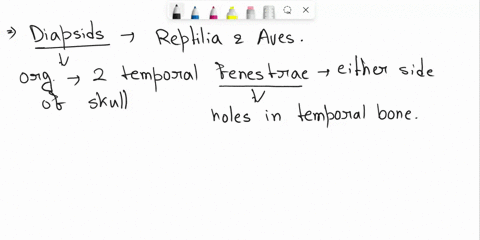 ⇒) Diapsids → Reptilia & Aves.
org. → 2 temporal fenestrae → either side
of skull
holes in temporal bone.